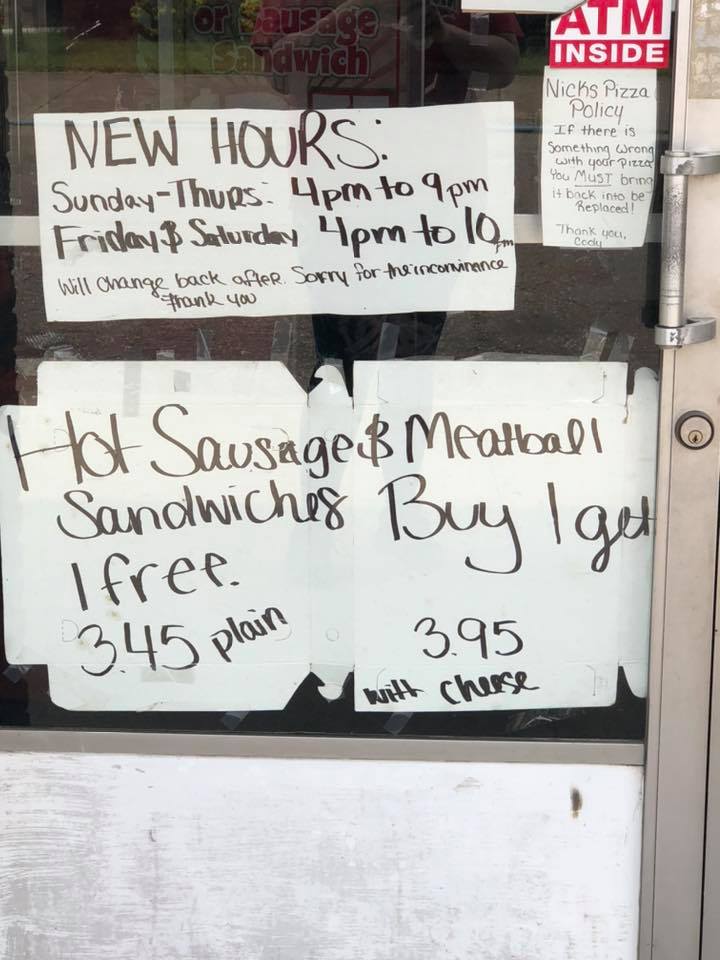 or Sausage
Sandwich
ATM
INSIDE
Nicks Pizza
Policy
If there is
Something Wrong
with your pizza
You MUST bring
it back into be
Replaced!
Thank you,
Cody
NEW HOURS:
Sunday-Thurs: 4pm to 9pm
Friday & Saturday 4pm to 10pm
Will Change back after. Sorry for the inconvinence
Thank you
Hot Sausage & Meatball
Sandwiches Buy 1 get
1 free.
3.45 plain
3.95
with cheese